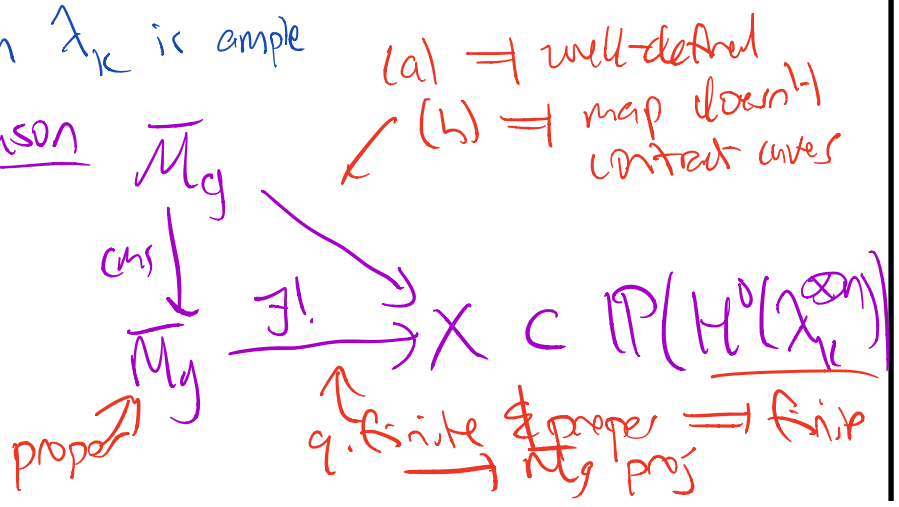 λ_k is ample
(a) ⇒ well-defined
(b) ⇒ map doesn't
contract curves
M̄_g
cms
∃!
M̄_g → X ⊂ ℙ(H⁰(λ_k^{⊗n}))
proper
q.finite & proper ⇒ finite
→ M̄_g proj